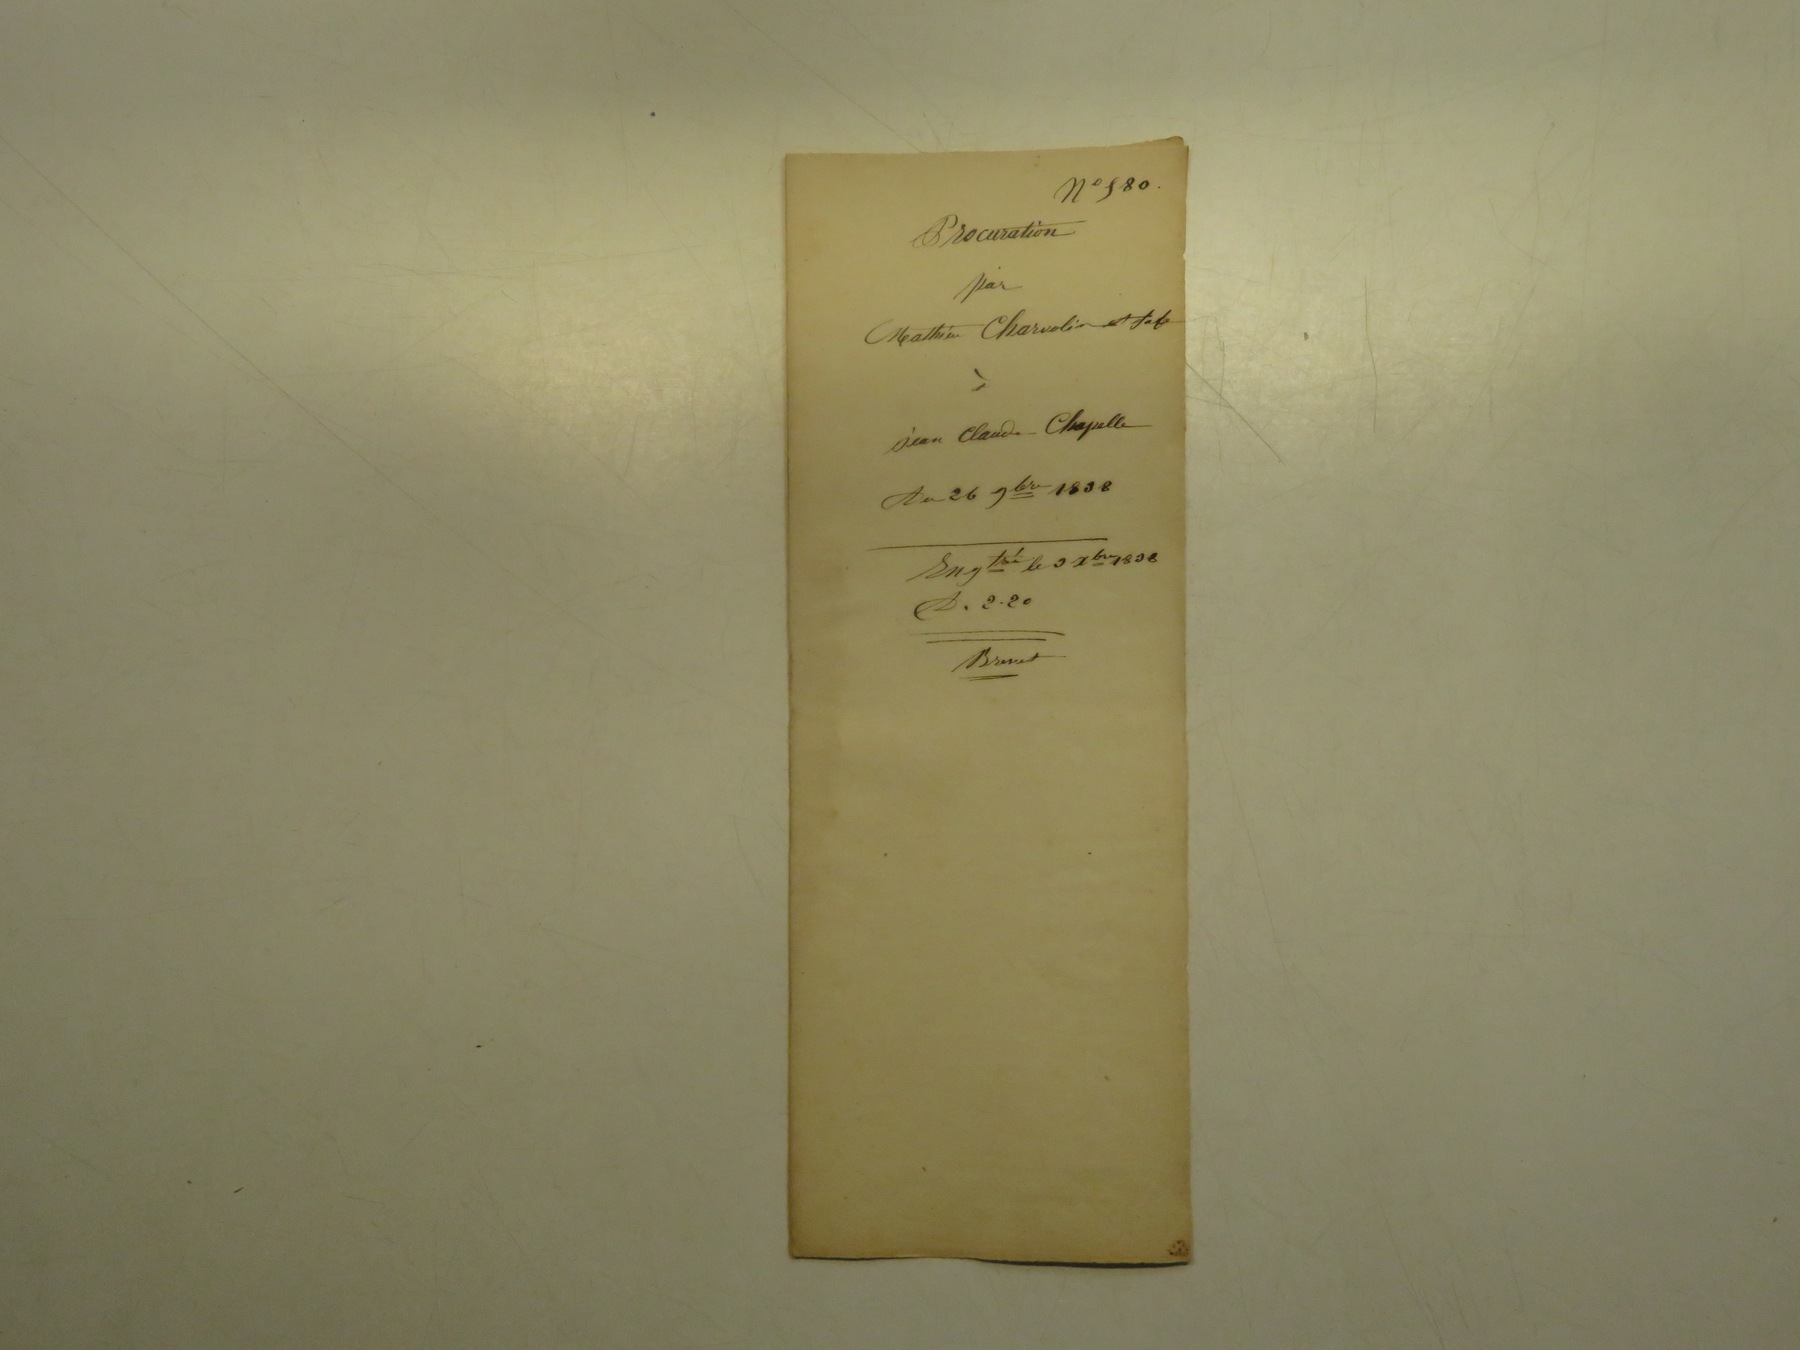 N° 580.
Procuration
par
Mathieu Charvolin et sa fe
à
Jean Claude Chapelle
Du 26 9bre 1838
Engtré le 3 Xbre 1838
D. 2.20
Brevet